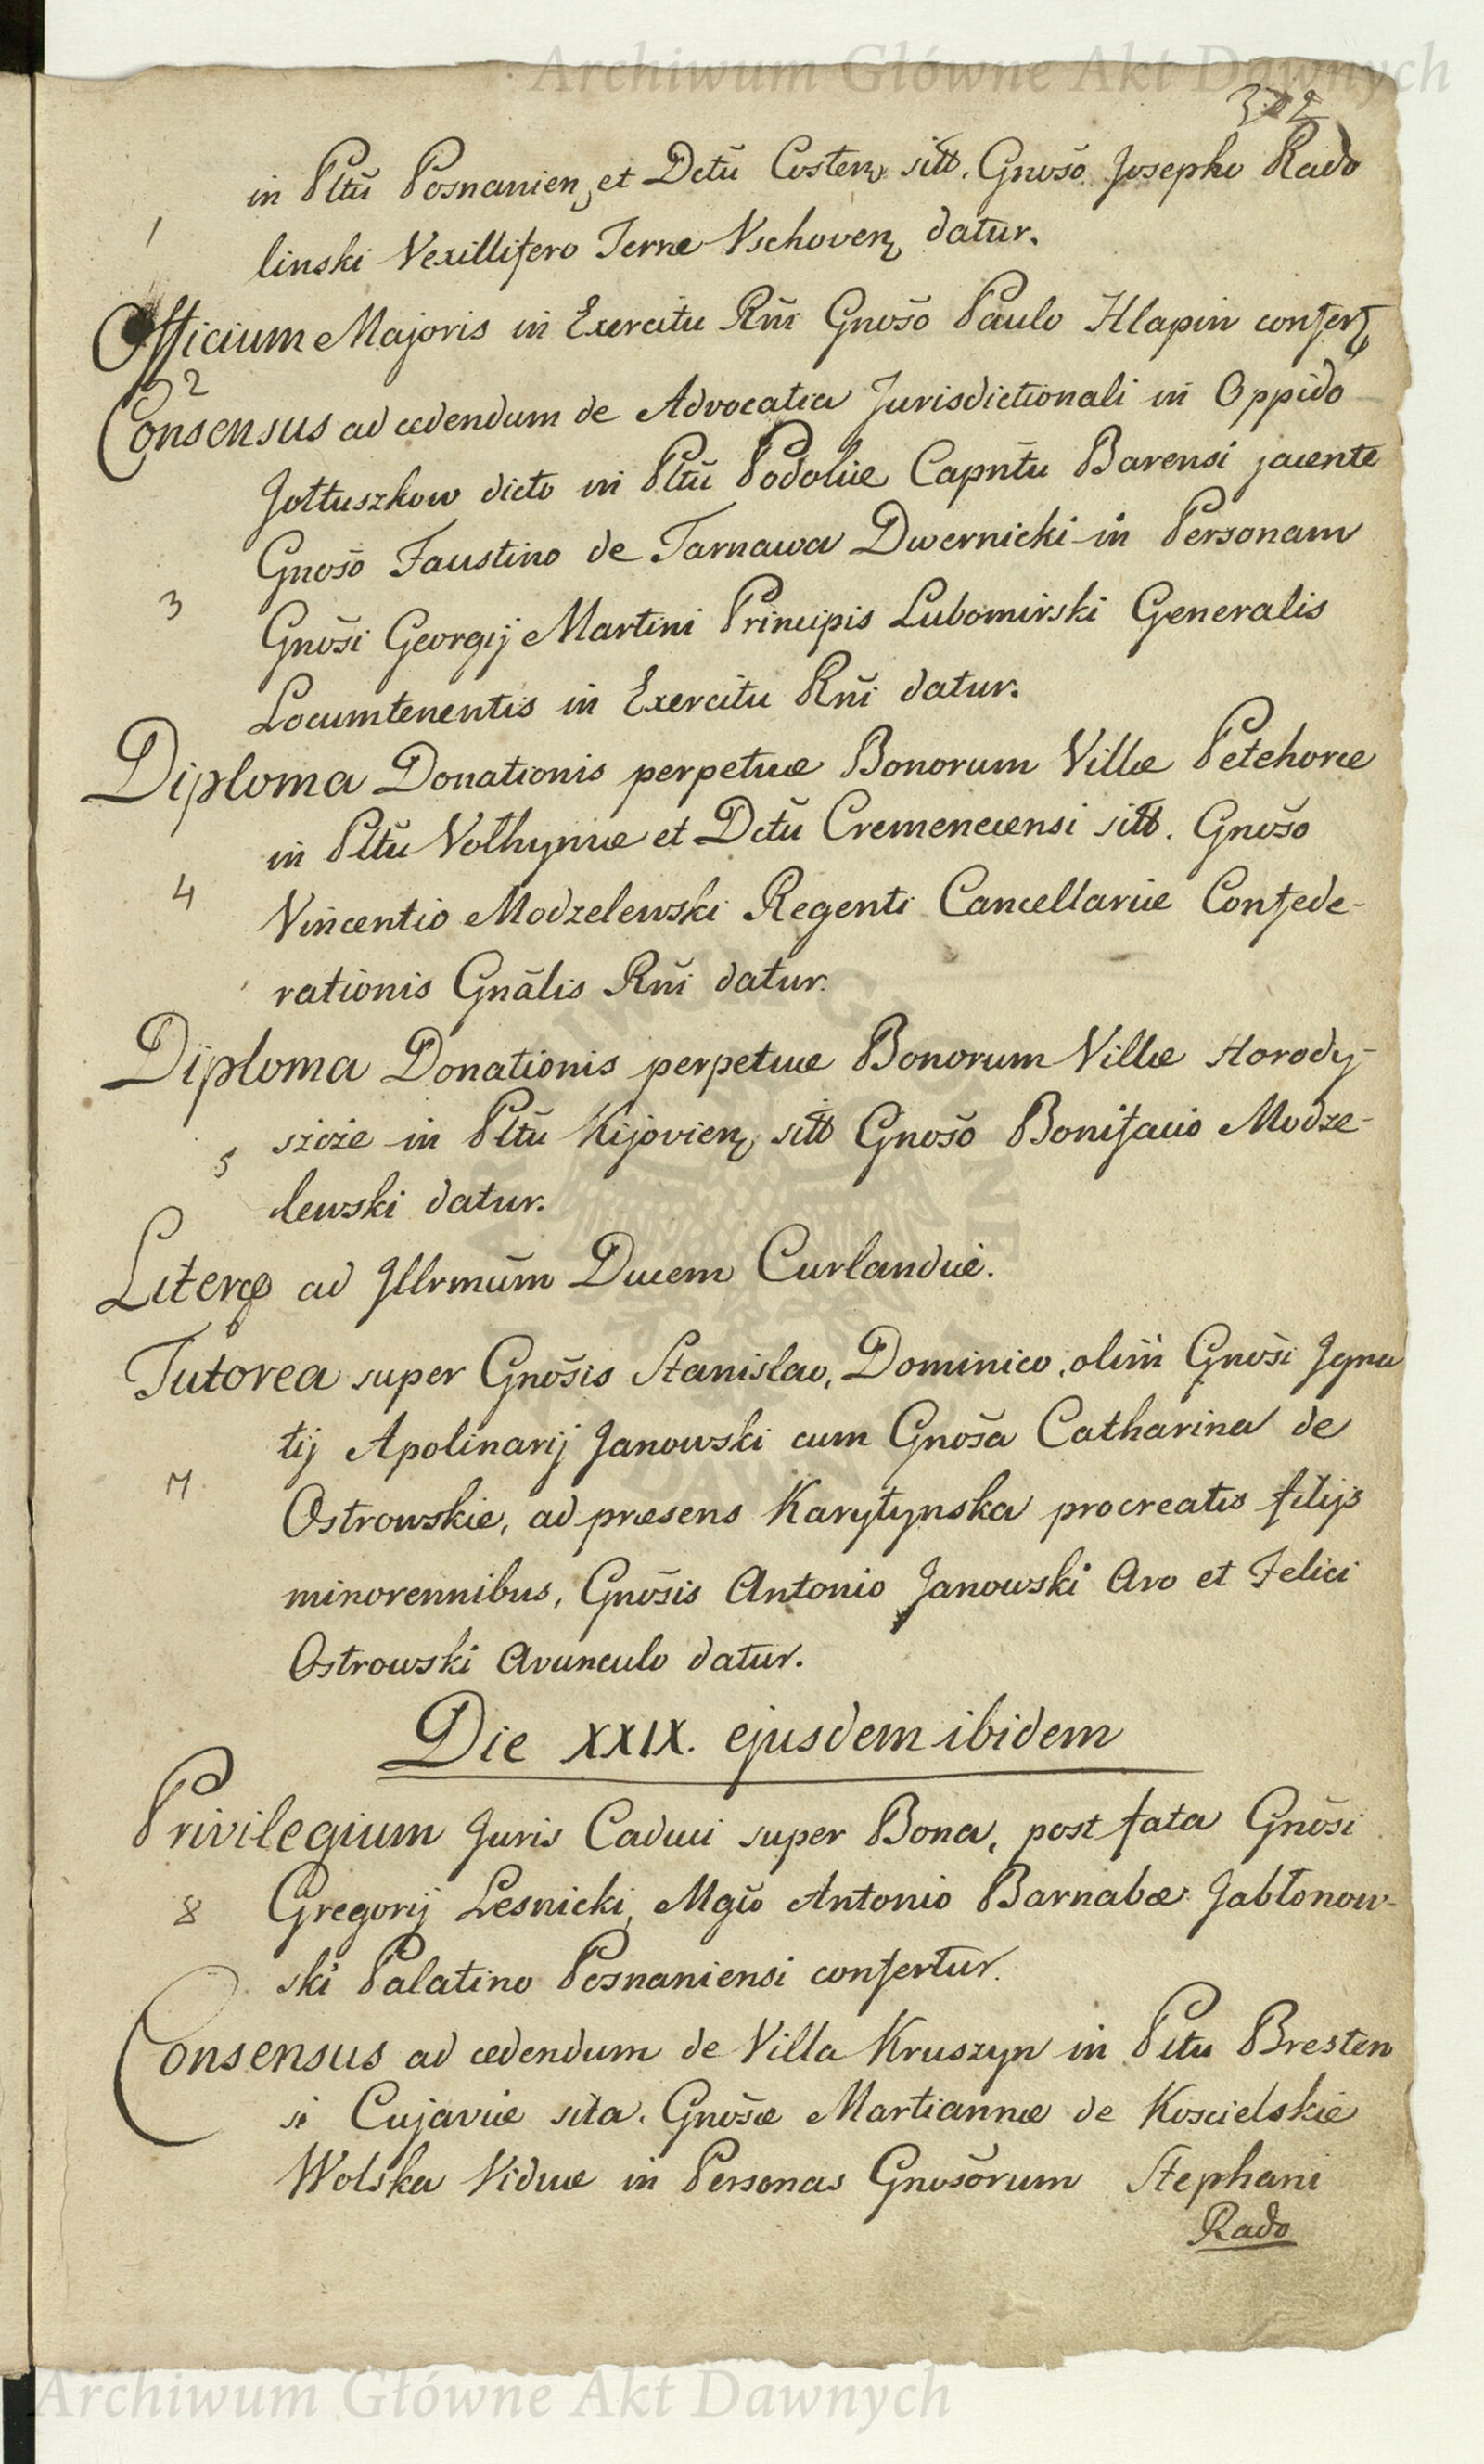 Archiwum Główne Akt Dawnych
302
in Pltū Posnanien, et Dctū Costen. sitt. Gnosō Josepho Rado
1 linski Vexillifero Terræ Vschoven. datur.
Officium Majoris in Exercitu Rnī Gnosō Paulo Hlapin confert.
2
Consensus ad cedendum de Advocatia Jurisdictionali in Oppido
Jołtuszkow dicto in Pltū Podoliæ Capntū Barensi jacente
Gnosō Faustino de Tarnawa Dwernicki in Personam
3 Gnosī Georgij Martini Principis Lubomirski Generalis
Locumtenentis in Exercitu Rnī datur.
Diploma Donationis perpetuæ Bonorum Villæ Petehorce
in Pltū Volhyniæ et Dctū Cremenecensi sitt. Gnosō
4 Vincentio Modzelewski Regenti Cancellariæ Confede-
rationis Gnālis Rnī datur.
Diploma Donationis perpetuæ Bonorum Villæ Horody-
5 szcze in Pltū Kijovien. sitt Gnosō Bonifacio Modze-
lewski datur.
Literæ ad Jllrmūm Ducem Curlandiæ.
6
Tutorea super Gnosīs Stanislao, Dominico, olim Gnosī Jgna
tij Apolinarij Janowski cum Gnosā Catharina de
7 Ostrowskie, ad præsens Karytynska procreatis filijs
minorennibus, Gnosīs Antonio Janowski Avo et Felici
Ostrowski Avunculo datur.
Die XXIX. ejusdem ibidem
Privilegium Juris Caduci super Bona, post fata Gnosī
8 Gregorij Lesnicki, Mgcō Antonio Barnabæ Jabłonow-
ski Palatino Posnaniensi confertur.
Consensus ad cedendum de Villa Kruszyn in Pltu Bresten
si Cujaviæ sita. Gnosæ Martiannæ de Koscielskie
Wolska Viduæ in Personas Gnosōrum Stephani
Rado
Archiwum Główne Akt Dawnych